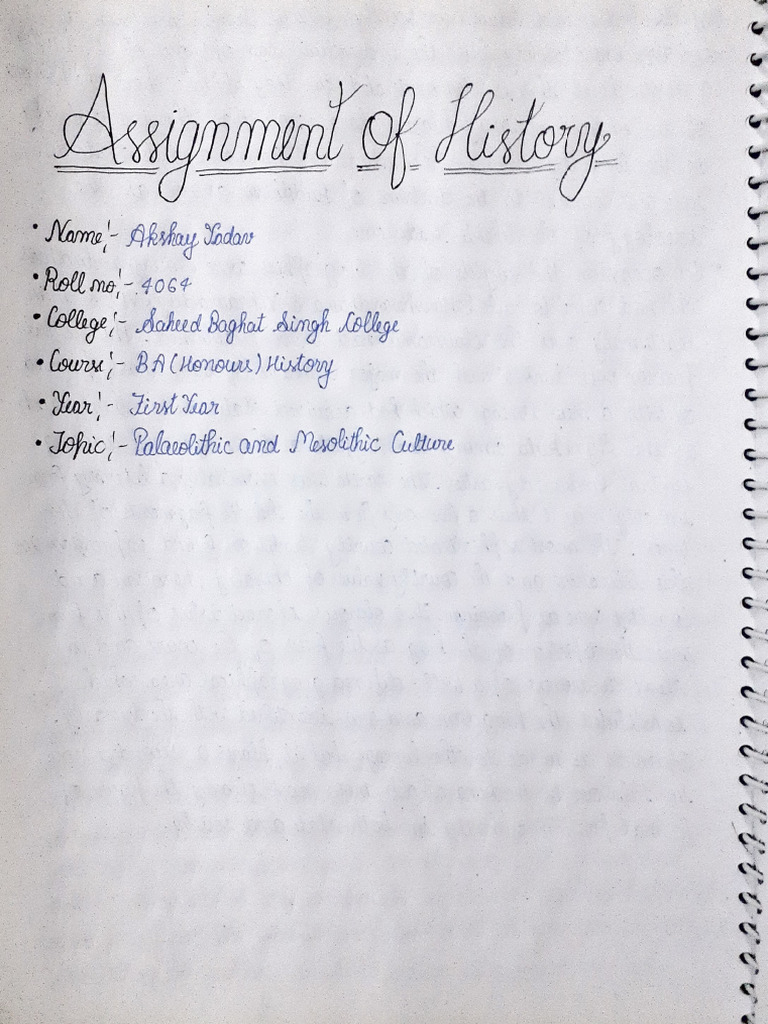 Assignment of History
• Name:- Akshay Yadav
• Roll no:- 4064
• College:- Saheed Baghat Singh College
• Course:- BA (Honours) History
• Year:- First Year
• Topic:- Palaeolithic and Mesolithic Culture